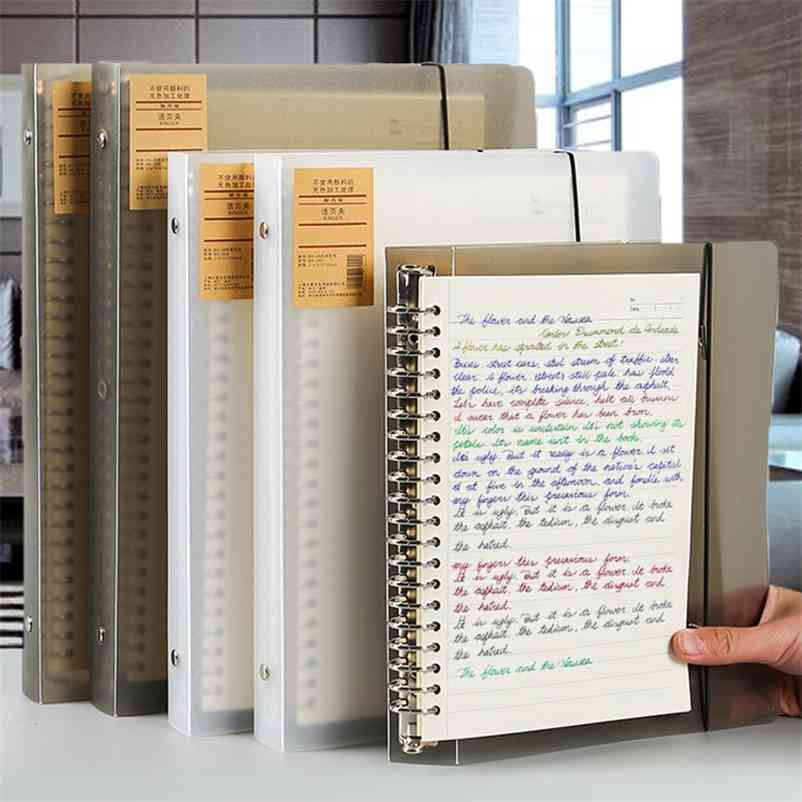 不使用颜料的
无色加工处理
活页夹
BINDER
不使用颜料的
无色加工处理
活页夹
BINDER
不使用颜料的
无色加工处理
活页夹
BINDER
No.
Date
The flower and the Nausea
Carlos Drummond de Andrade
A flower has sprouted in the street!
Buses, street cars, steel stream of traffic steer
clear. A flower, still pale, has fooled
the police, it's breaking through the asphalt.
Let's have complete silence, halt all business
I swear that a flower has been born.
It's color is uncertain It's not showing its
petals. Its name isn't in the book.
It's ugly. But it really is a flower. I sit
down on the ground of the nation's capital
at five in the afternoon, and fondle with
my fingers this precarious form.
It is ugly. But it is a flower. It broke
the asphalt, the tedium, the disgust and
the hatred.
my fingers this precarious form.
It is ugly. But it is a flower. It broke
the asphalt, the tedium, the disgust and
the hatred.
It is ugly. But it is a flower. It broke
the asphalt, the tedium, the disgust and
the hatred.
The flower and the Nausea